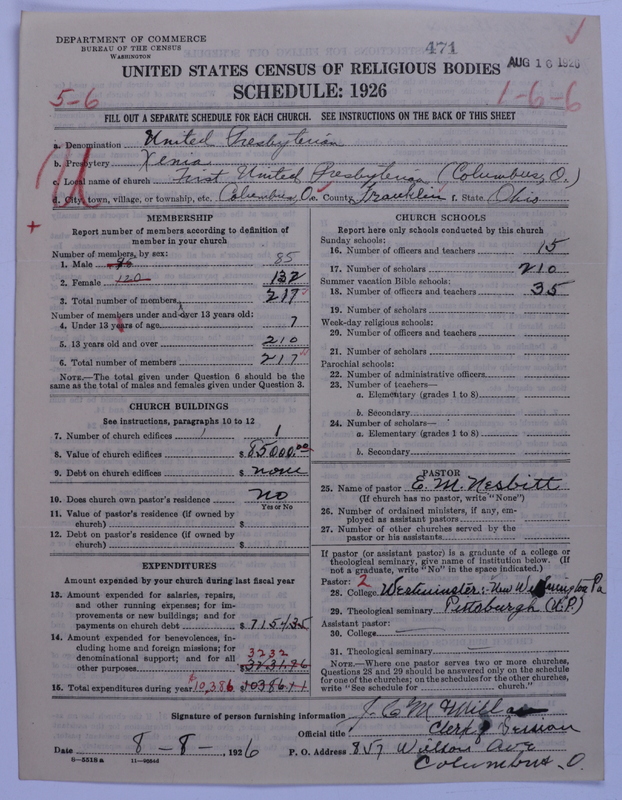 DEPARTMENT OF COMMERCE
BUREAU OF THE CENSUS
WASHINGTON
471
AUG 16 1926
UNITED STATES CENSUS OF RELIGIOUS BODIES
SCHEDULE: 1926
5-6
1-6-6
FILL OUT A SEPARATE SCHEDULE FOR EACH CHURCH. SEE INSTRUCTIONS ON THE BACK OF THIS SHEET
a. Denomination United Presbyterian
b. Presbytery Xenia
c. Local name of church First United Presbyterian (Columbus, O.)
d. City, town, village, or township, etc. Columbus, O. e. County Franklin f. State Ohio
MEMBERSHIP
Report number of members according to definition of member in your church
Number of members, by sex:
1. Male 85
2. Female 120 132
3. Total number of members 217
Number of members under and over 13 years old:
4. Under 13 years of age 7
5. 13 years old and over 210
6. Total number of members 217
NOTE.—The total given under Question 6 should be the same as the total of males and females given under Question 3.
CHURCH BUILDINGS
See instructions, paragraphs 10 to 12
7. Number of church edifices 1
8. Value of church edifices $ 85000.00
9. Debt on church edifices $ none
10. Does church own pastor's residence no
Yes or No
11. Value of pastor's residence (if owned by church) $
12. Debt on pastor's residence (if owned by church) $
EXPENDITURES
Amount expended by your church during last fiscal year
13. Amount expended for salaries, repairs, and other running expenses; for improvements or new buildings; and for payments on church debt $ 7154.35
14. Amount expended for benevolences, including home and foreign missions; for denominational support; and for all other purposes 3232 $ 3231.86
15. Total expenditures during year 10,386 $
CHURCH SCHOOLS
Report here only schools conducted by this church
Sunday schools:
16. Number of officers and teachers 15
17. Number of scholars 210
Summer vacation Bible schools:
18. Number of officers and teachers 35
19. Number of scholars
Week-day religious schools:
20. Number of officers and teachers
21. Number of scholars
Parochial schools:
22. Number of administrative officers
23. Number of teachers—
a. Elementary (grades 1 to 8)
b. Secondary
24. Number of scholars—
a. Elementary (grades 1 to 8)
b. Secondary
PASTOR
25. Name of pastor E. M. Nesbitt
(If church has no pastor, write "None")
26. Number of ordained ministers, if any, employed as assistant pastors
27. Number of other churches served by the pastor or his assistants
If pastor (or assistant pastor) is a graduate of a college or theological seminary, give name of institution below. (If not a graduate, write "No" in the space indicated.)
Pastor: 2
28. College Westminster: New Wilmington Pa
29. Theological seminary Pittsburgh (U.P.)
Assistant pastor:
30. College —
31. Theological seminary —
NOTE.—Where one pastor serves two or more churches, Questions 28 and 29 should be answered only on the schedule for one of the churches; on the schedules for the other churches, write "See schedule for church."
Signature of person furnishing information J. C. M
Official title Clerk of Session
Date 8-8-, 1926 P. O. Address 857 Wilson Ave
Columbus - O.
8-5518 a